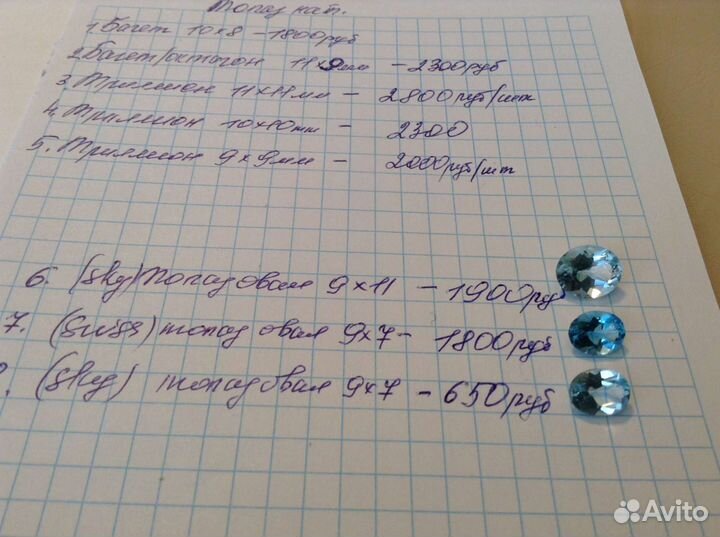 Топаз нат.
1. Багет 10х8 - 1800руб
2. Багет/октагон 11х9мм - 2300руб
3. Триллион 11х11мм - 2800руб/шт
4. Триллион 10х10мм - 2300
5. Триллион 9х9мм - 2000руб/шт
6. (sky) топаз овал 9х11 - 1900руб
7. (swiss) топаз овал 9х7 - 1800руб
(sky) топаз овал 9х7 - 650руб
Avito